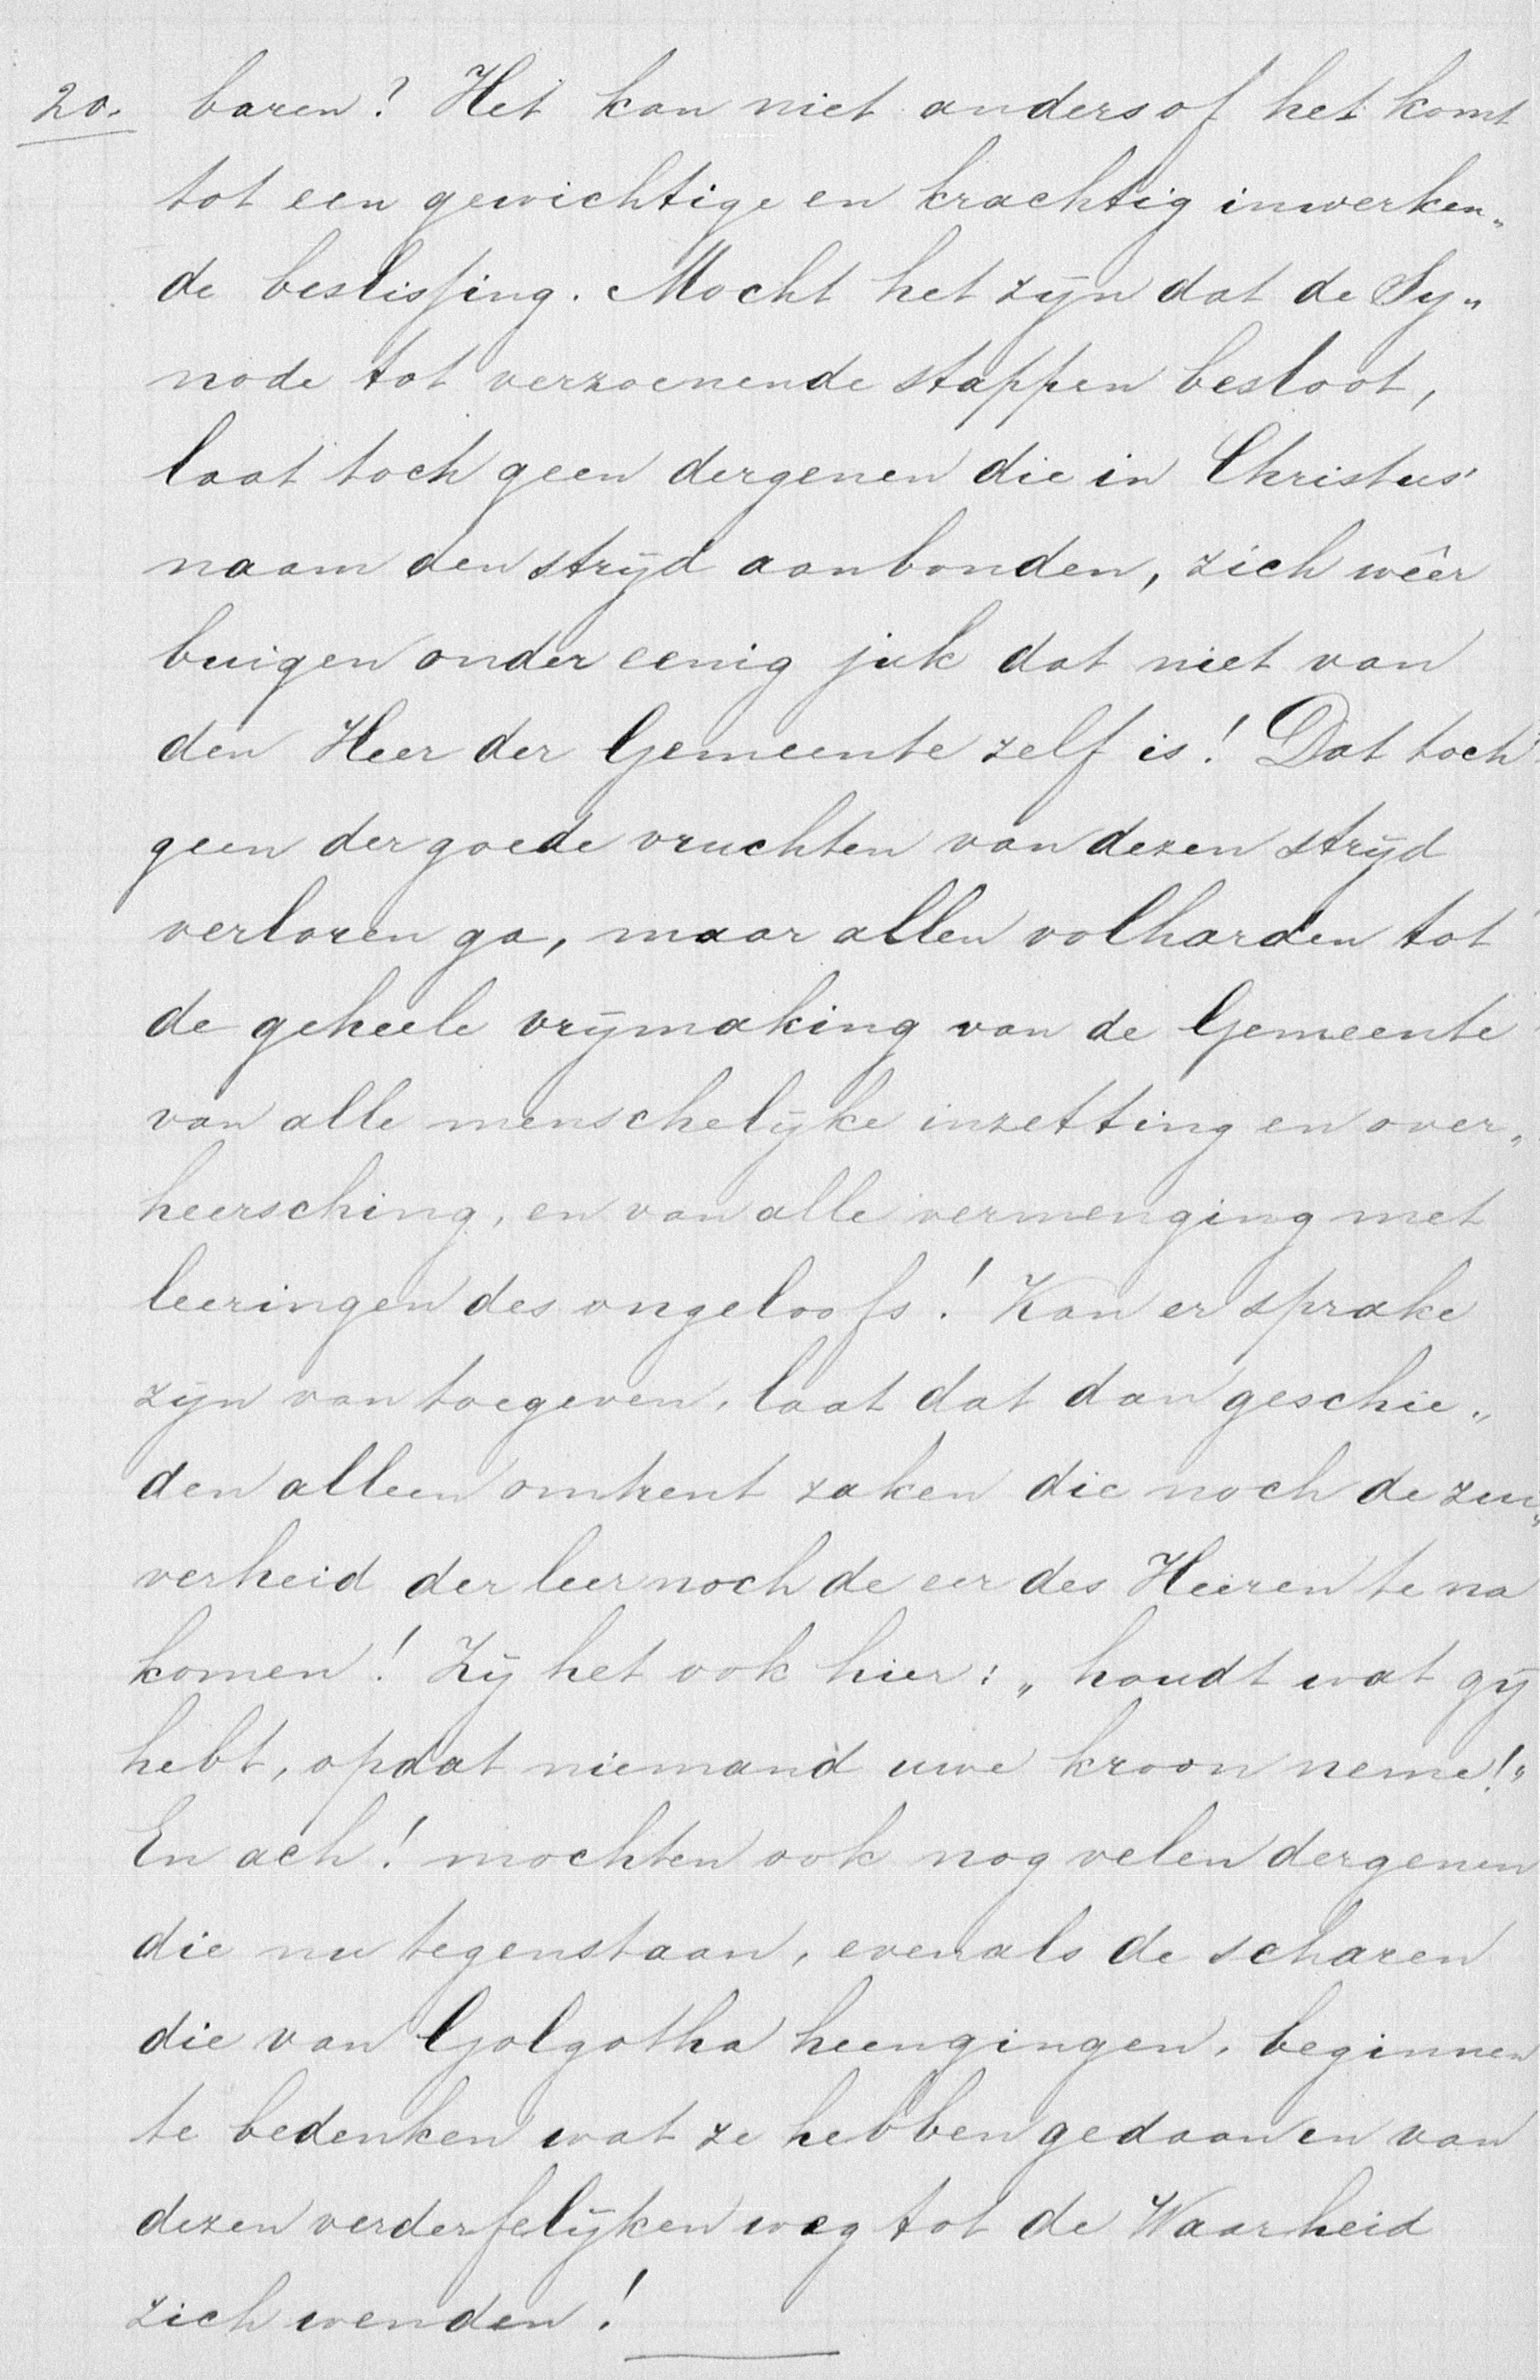 20. baren? Het kan niet anders of het komt
tot een gewichtige en krachtig inwerken„
de beslissing. Mocht het zijn dat de Sy„
node tot verzoenende stappen besloot,
laat toch geen dergenen die in Christus'
naam den strijd aanbonden, zich wêêr
buigen onder eenig juk dat niet van
den Heer der Gemeente zelf is! Dat toch
geen der goede vruchten van dezen strijd
verloren ga, maar allen volharden tot
de geheele vrijmaking van de Gemeente
van alle menschelijke inzetting en over„
heersching, en van alle vermenging met
leeringen des ongeloofs! Kan er sprake
zijn van toegeven, laat dat dan geschie„
den alleen omtrent zaken die noch de zui„
verheid der leer noch de eer des Heeren te na
komen! Zij het ook hier: „houdt wat gij
hebt, opdat niemand uwe kroon neme!"
En ach! mochten ook nog velen dergenen
die nu tegenstaan, evenals de scharen
die van Golgotha heengingen, beginnen
te bedenken wat ze hebben gedaan en van
dezen verderfelijken weg tot de Waarheid
zich wenden!